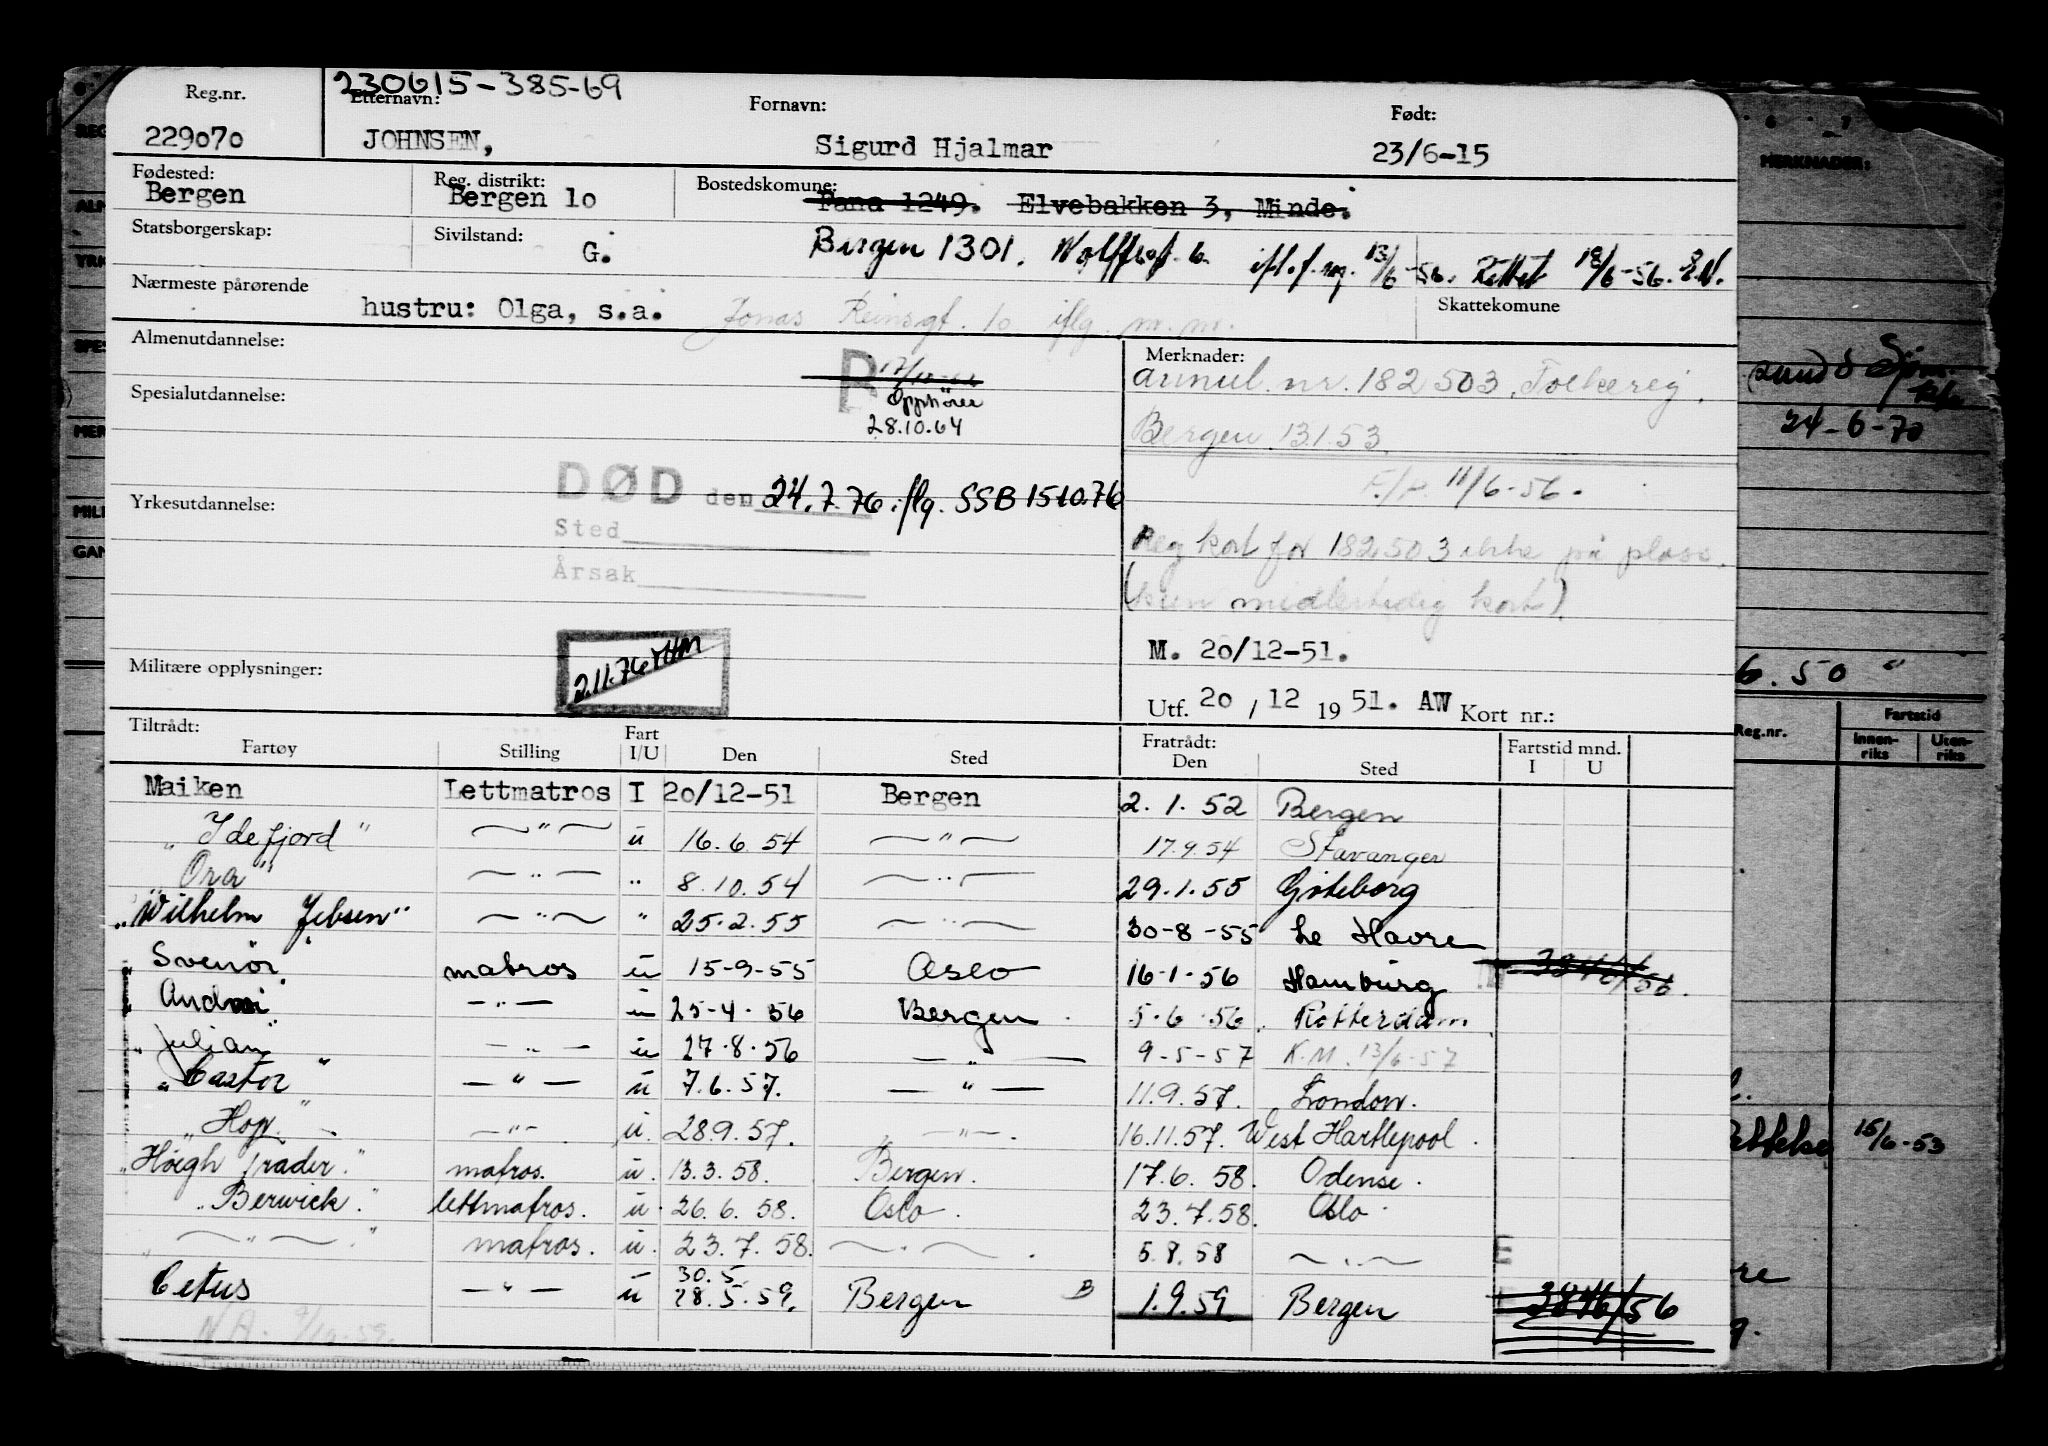 230615-385-69
Reg.nr. Etternavn: Fornavn: Født:
229070 JOHNSEN, Sigurd Hjalmar 23/6-15
Fødested: Reg. distrikt: Bostedskomune:
Bergen Bergen 10 Fana 1249. Elvebakken 3, Minde.
Statsborgerskap: Sivilstand: G. Bergen 1301. 6. 13/6-56. Rettet 18/6-56.
Nærmeste pårørende Skattekomune
hustru: Olga, s.a. Jonas Reinsgt. 10 iflg. m.m.
Almenutdannelse: Merknader:
R annul. nr. 182503. Folkereg.
Spesialutdannelse: Opphører
28.10.64 Bergen 13.1.53.
11/6-56.
DØD den 24.7.76 iflg. SSB 15.10.76
Yrkesutdannelse:
Sted
Reg kort for 182503 ikke på plass.
Årsak
(kun midlertidig kort)
M. 20/12-51.
Militære opplysninger: 2.11.76
Utf. 20 / 12 19 51. AW Kort nr.:
Tiltrådt: Fart Fratrådt: Fartstid mnd.
Fartøy Stilling I/U Den Sted Den Sted I U
Maiken Lettmatros I 20/12-51 Bergen 2.1.52 Bergen
"Idefjord" —"— u 16.6.54 —"— 17.9.54 Stavanger
"Ora" —"— " 8.10.54 —"— 29.1.55 Göteborg
"Wilhelm Jebsen" —"— " 25.2.55 —"— 30-8-55 Le Havre
Svenör matros u 15-9-55 Oslo 16-1-56 Hamburg
—"— u 25-4-56 Bergen 5-6-56. Rotterdam
"Julian" —"— u 27-8-56 —"— 9-5-57 K.M. 13/6-57
"Castor" —"— u 7.6.57. —"— 11.9.57. London.
"Hop" —"— u. 28.9.57. —"— 16.11.57. West Hartlepool.
"Höegh Trader." matros. u. 13.3.58. Bergen. 17.6.58. Odense.
"Berwick." lettmatros. u. 26.6.58. Oslo. 23.7.58. Oslo.
"—"—" matros. u. 23.7.58. —"— 5.8.58 —"— E
30.5.
Cetus —"— u 28.5.59. Bergen B 1.9.59 Bergen 3846/56
MERKNADER:
24-6-70
6.50 "
Reg.nr. Fartstid
Innen-riks Uten-riks
15/6-53